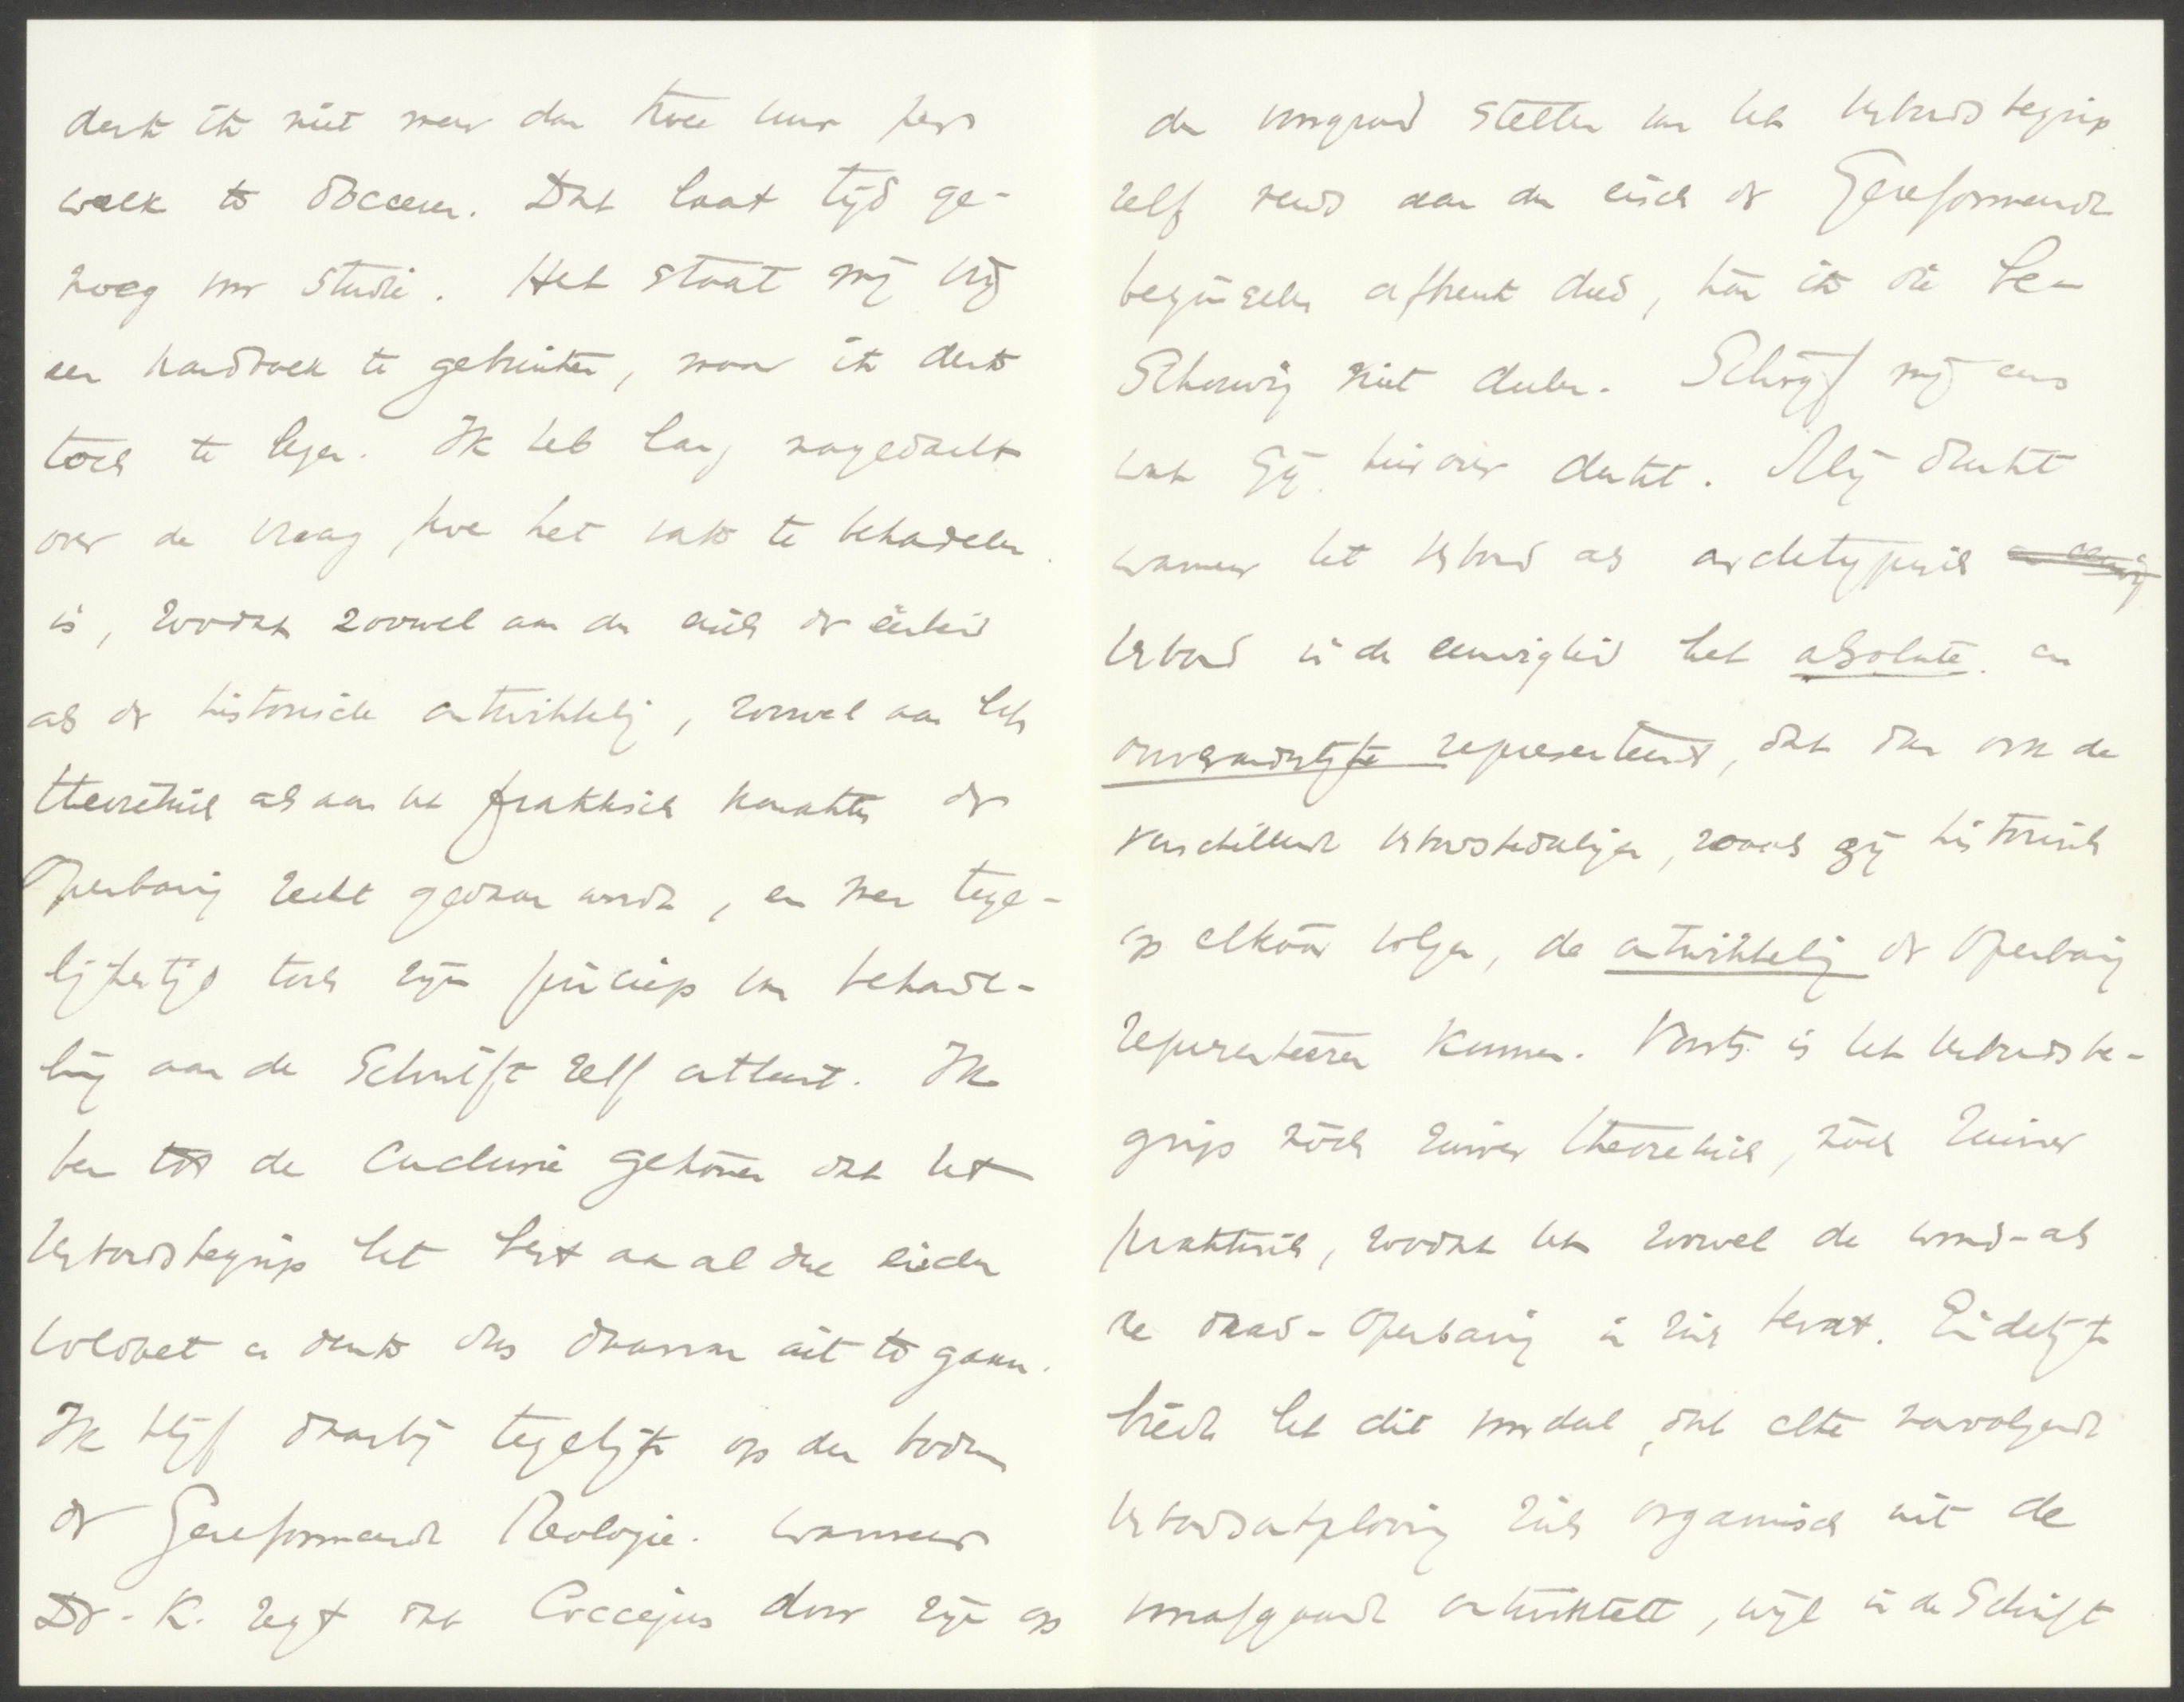 denk ik niet meer dan twee uur per
week te doceeren. Dat laat tijd ge-
noeg voor studie. Het staat mij vrij
een handboek te gebruiken, maar ik denk
toch te lezen. Ik heb lang nagedacht
over de vraag, hoe het vak te behandelen
is, zoodat zoowel aan den eisch der eenheid
als der historische ontwikkeling, zoowel aan het
theoretisch als aan het praktisch karakter der
Openbaring recht gedaan wordt, en men tege-
lijkertijd toch zijn principe van behande-
ling aan de Schrift zelf ontleent. Ik
ben tot de conclusie gekomen dat het
Verbondsbegrip het best aan al deze eischen
voldoet en denk dus daarvan uit te gaan.
Ik blijf daarbij tegelijk op den bodem
der Gereformeerde Theologie. Wanneer
Dr. K. zegt dat Coccejus door zijn op
den voorgrond stellen van het Verbondsbegrip
zelf reeds aan den eisch der Gereformeerde
beginselen afbreuk deed, kan ik die be-
schouwing niet deelen. Schrijf mij eens
wat gij hierover denkt. Mij dunkt
wanneer het Verbond als archetypisch
Verbond in de eeuwigheid het absolute en
onveranderlijke representeert, dat dan ook de
verschillende verbondsbedeelingen, zooals zij historisch
op elkaar volgen, de ontwikkeling der Openbaring
representeeren kunnen. Voorts is het Verbondsbe-
grip nòch zuiver theoretisch, nòch zuiver
praktisch, zoodat het zoowel de woord- als
de daad-Openbaring in zich bevat. Eindelijk
biedt het dit voordeel, dat elke navolgende
Verbondsontplooiing zich organisch uit de
voorafgaande ontwikkelt, wijl in de Schrift